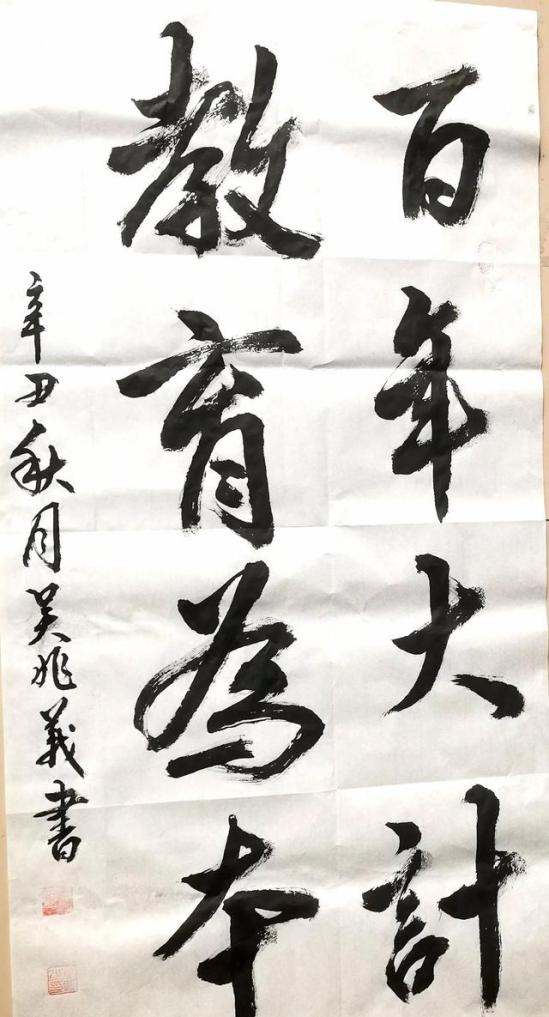 百年大計
教育為本
辛丑秋月吴兆義書